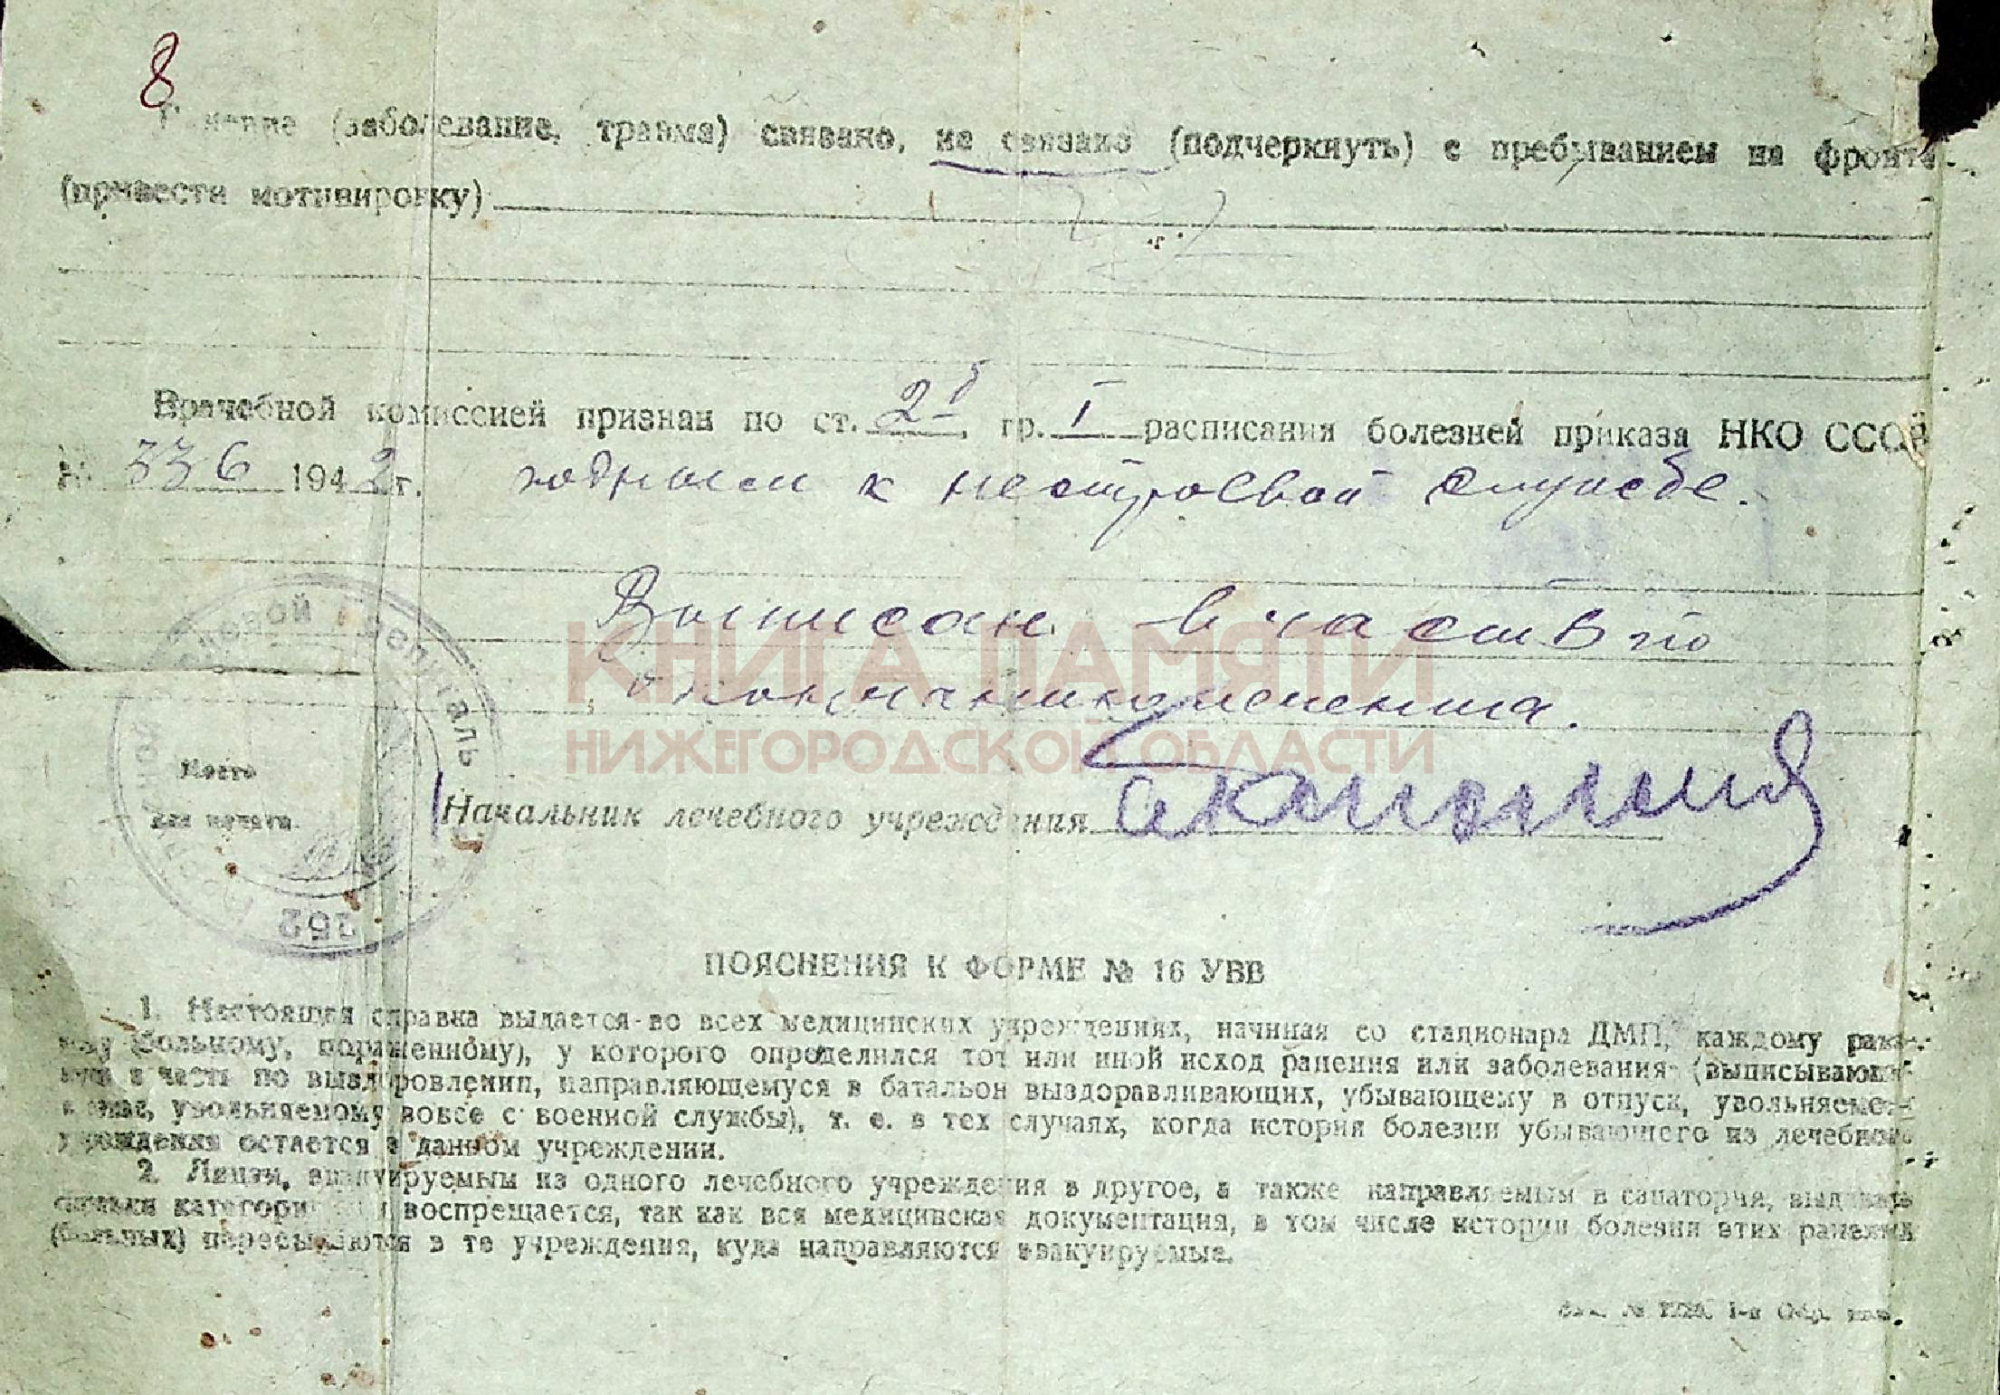 8
Ранение (заболевание, травма) связано, не связано (подчеркнуть) с пребыванием на фронте
(привести мотивировку)
Врачебной комиссией признан по ст. 2б гр. I расписания болезней приказа НКО СССР
№ 336 1942 г. годным к нестроевой службе.
Выписан в часть по
окончании лечения.
КНИГА ПАМЯТИ
НИЖЕГОРОДСКОЙ ОБЛАСТИ
Место
для печати.
госпиталь
362
Начальник лечебного учреждения
ПОЯСНЕНИЯ К ФОРМЕ № 16 УВВ
1. Настоящая справка выдается во всех медицинских учреждениях, начиная со стационара ДМП, каждому ране-
ному (больному, пораженному), у которого определился тот или иной исход ранения или заболевания (выписывающе-
муся в часть по выздоровлении, направляющемуся в батальон выздоравливающих, убывающему в отпуск, увольняемому
в запас, увольняемому вовсе с военной службы), т. е. в тех случаях, когда история болезни убывающего из лечебного
учреждения остается в данном учреждении.
2. Лицам, эвакуируемым из одного лечебного учреждения в другое, а также направляемым в санатория, выдавать
справки категорически воспрещается, так как вся медицинская документация, в том числе истории болезни этих раненых
(больных) пересылаются в те учреждения, куда направляются эвакуируемые.